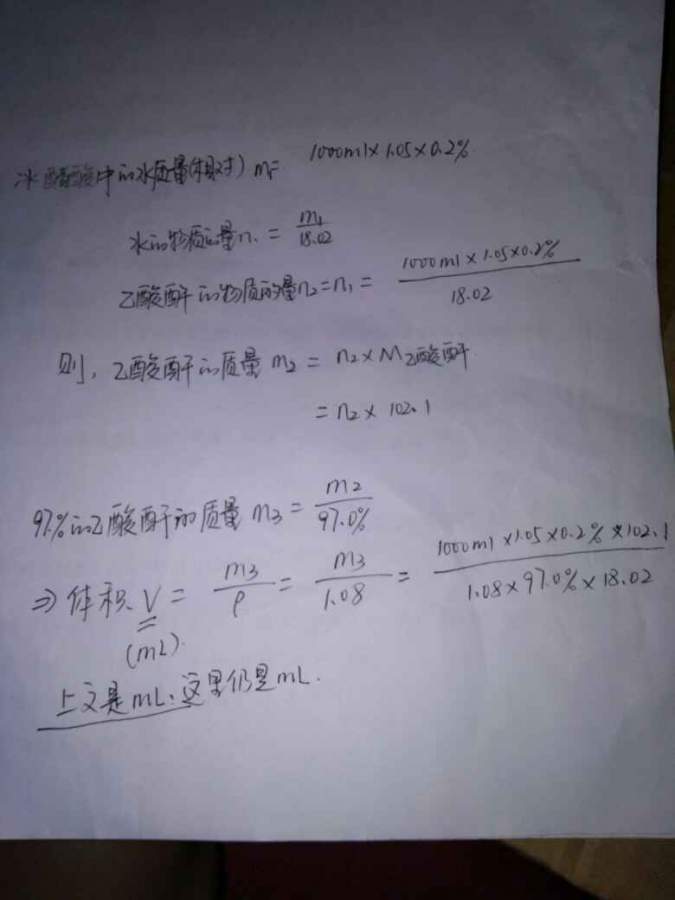 冰醋酸中的水质量(相对) m₁= 1000ml×1.05×0.2%
水的物质的量n₁ = m₁/18.02
乙酸酐的物质的量n₂=n₁ = 1000ml×1.05×0.2%/18.02
则，乙酸酐的质量 m₂ = n₂×M乙酸酐
= n₂× 102.1
97%的乙酸酐的质量 m₃ = m₂/97.0%
⇒ 体积 V = m₃/ρ = m₃/1.08 = 1000ml×1.05×0.2%×102.1/1.08×97.0%×18.02
(mL).
上文是mL，这里仍是mL.